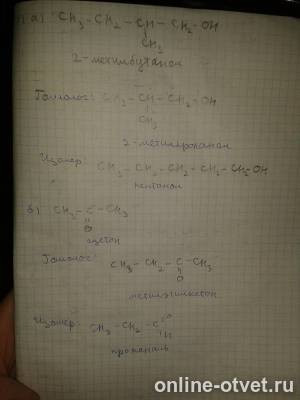 а) CH₃ - CH₂ - CH - CH₂ - OH
CH₃
2-метилбутанол
Гомолог: CH₃ - CH - CH₂ - OH
CH₃
2-метилпропанол
Изомер: CH₃ - CH₂ - CH₂ - CH₂ - CH₂OH
пентанол
б) CH₃ - C - CH₃
O
ацетон
Гомолог:
CH₃ - CH₂ - C - CH₃
O
метилэтилкетон
Изомер: CH₃ - CH₂ - C O
H
пропаналь
online-otvet.ru